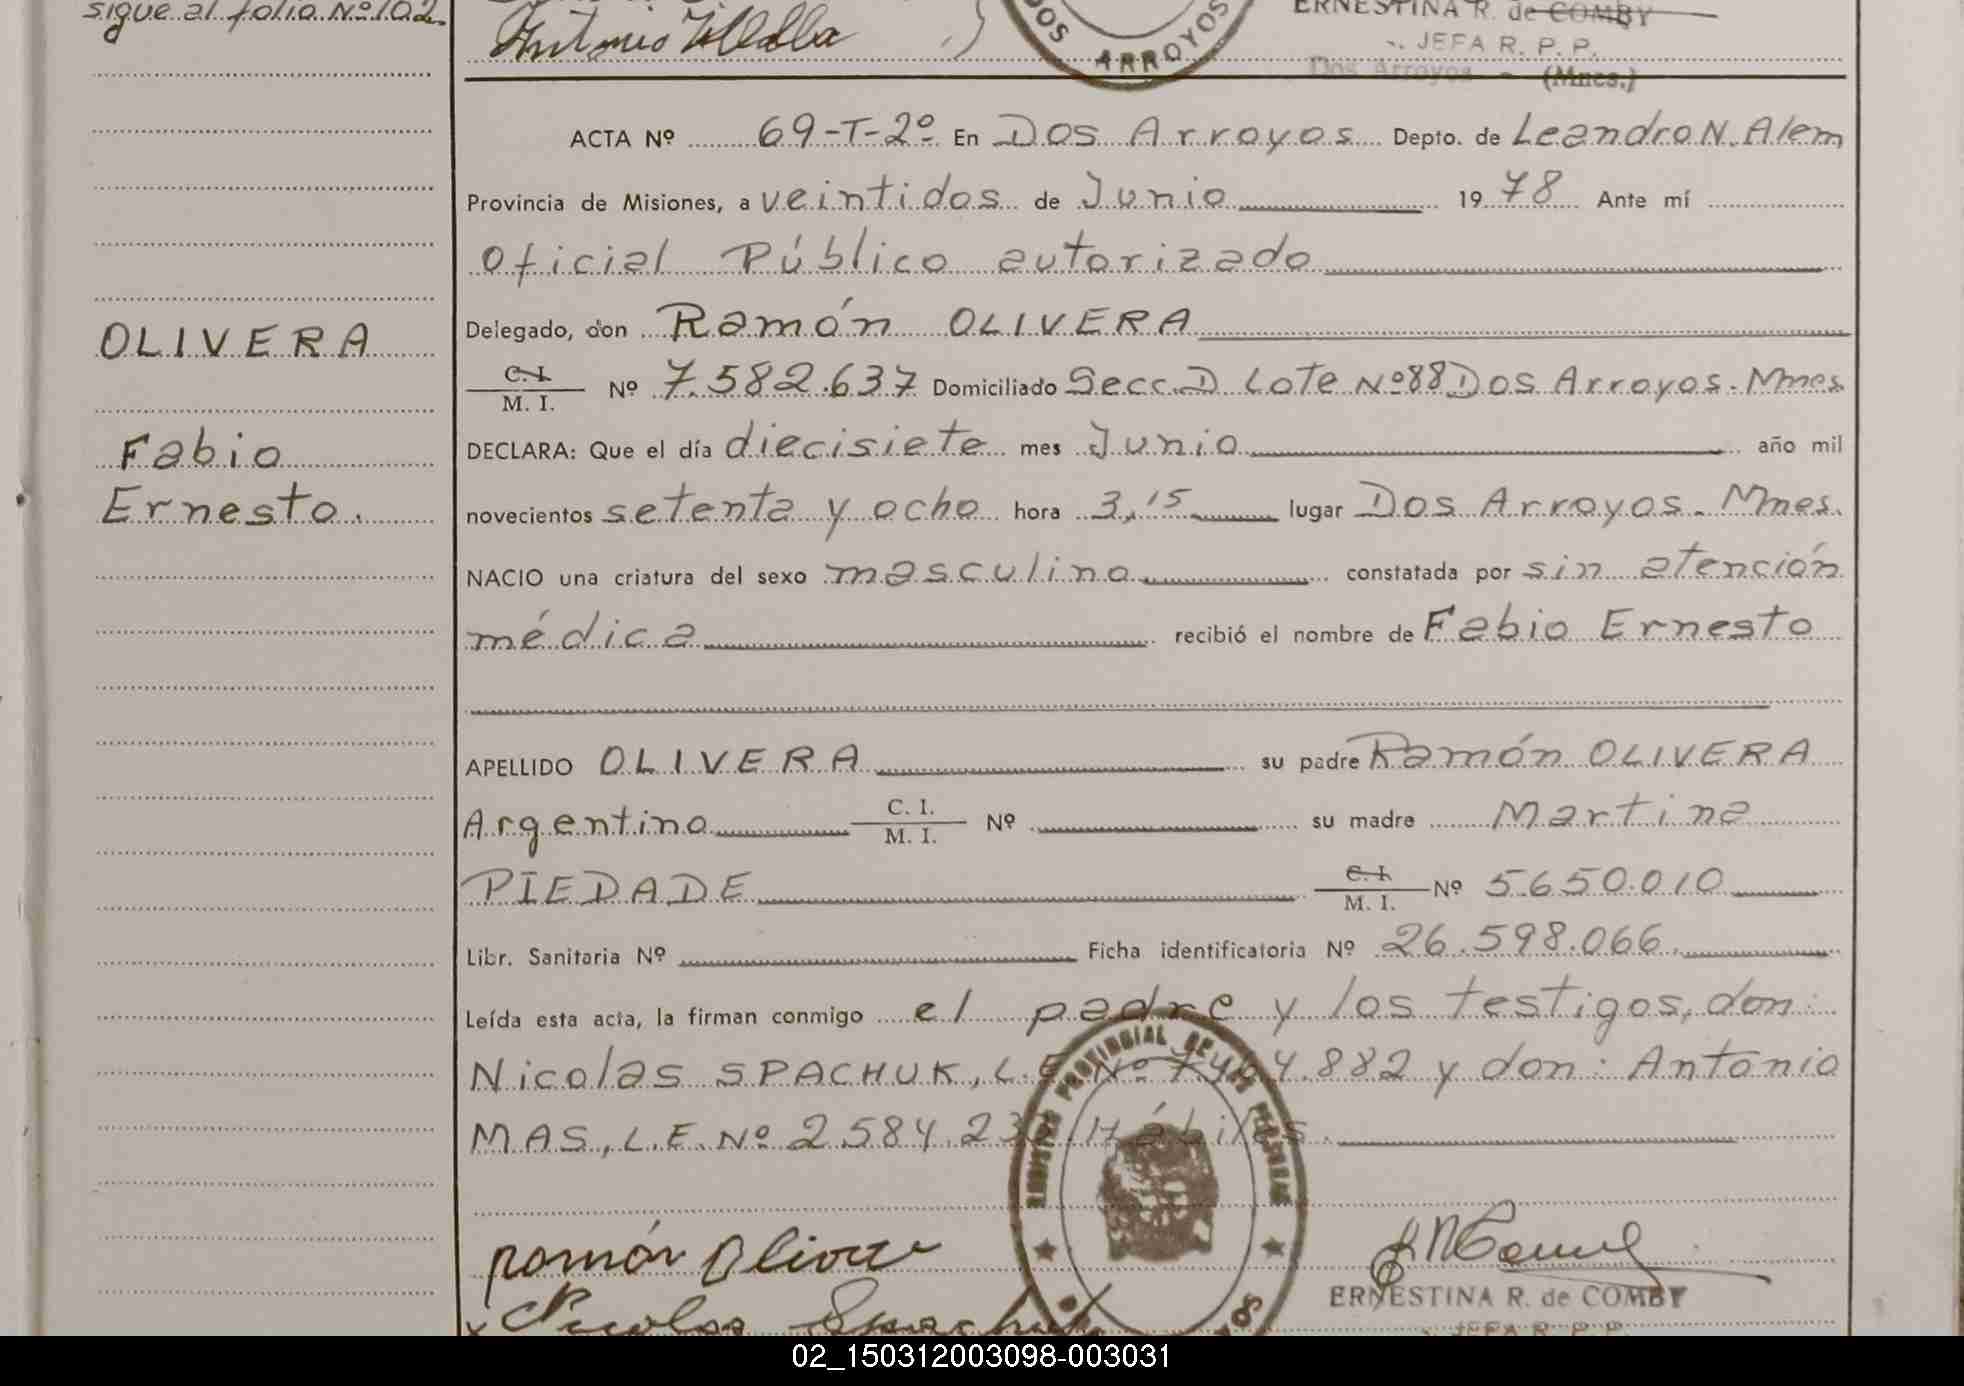 sigue al folio Nº 102.
Antonio Villalba
DOS ARROYOS
ERNESTINA R. de COMBY
JEFA R. P. P.
Dos Arroyos - (Mnes.)
ACTA Nº 69-T-2º En Dos Arroyos Depto. de Leandro N. Alem
Provincia de Misiones, a veintidos de Junio 1978 Ante mí
Oficial Público autorizado
OLIVERA
Delegado, don Ramón OLIVERA
C. I.
M. I. Nº 7.582.637 Domiciliado Secc. D Lote Nº 88 Dos Arroyos. Mnes.
Fabio
DECLARA: Que el día diecisiete mes Junio año mil
Ernesto.
novecientos setenta y ocho hora 3,15 lugar Dos Arroyos. Mnes.
NACIO una criatura del sexo masculino constatada por sin atención
médica recibió el nombre de Fabio Ernesto
APELLIDO OLIVERA su padre Ramón OLIVERA
Argentino C. I. M. I. Nº su madre Martina
PIEDADE C. I. M. I. Nº 5.650.010
Libr. Sanitaria Nº Ficha identificatoria Nº 26.598.066.
Leída esta acta, la firman conmigo el padre y los testigos, don:
Nicolas SPACHUK, L.E. Nº 4.882 y don: Antonio
MAS, L.E. Nº 2.584.23 Hábiles.
REGISTRO PROVINCIAL DE LAS PERSONAS
Ramón Olivera
ERNESTINA R. de COMBY
Nicolas Spachuk
JEFA R. P. P.
02_150312003098-003031